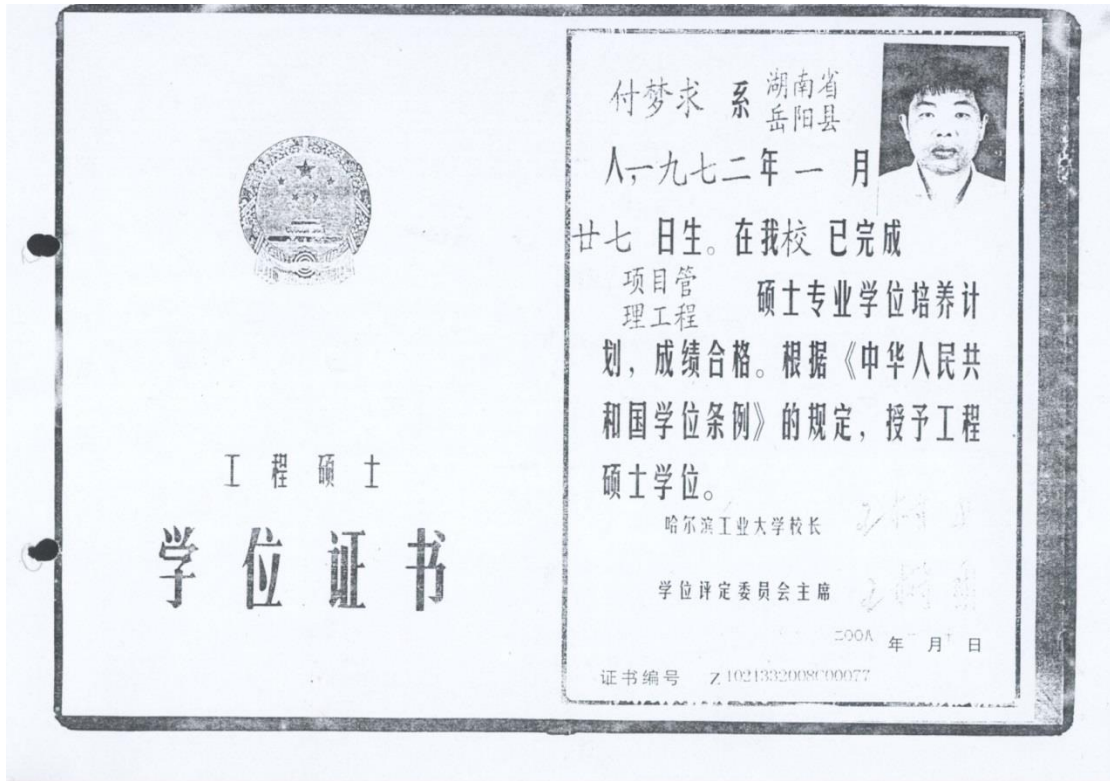 工程硕士
学位证书
付梦求 系 湖南省
岳阳县
人,一九七二年 一 月
廿七 日生。在我校 已完成
项目管
理工程 硕士专业学位培养计
划，成绩合格。根据《中华人民共
和国学位条例》的规定，授予工程
硕士学位。
哈尔滨工业大学校长
学位评定委员会主席
二00八 年 月 日
证书编号 Z1021332008C00077